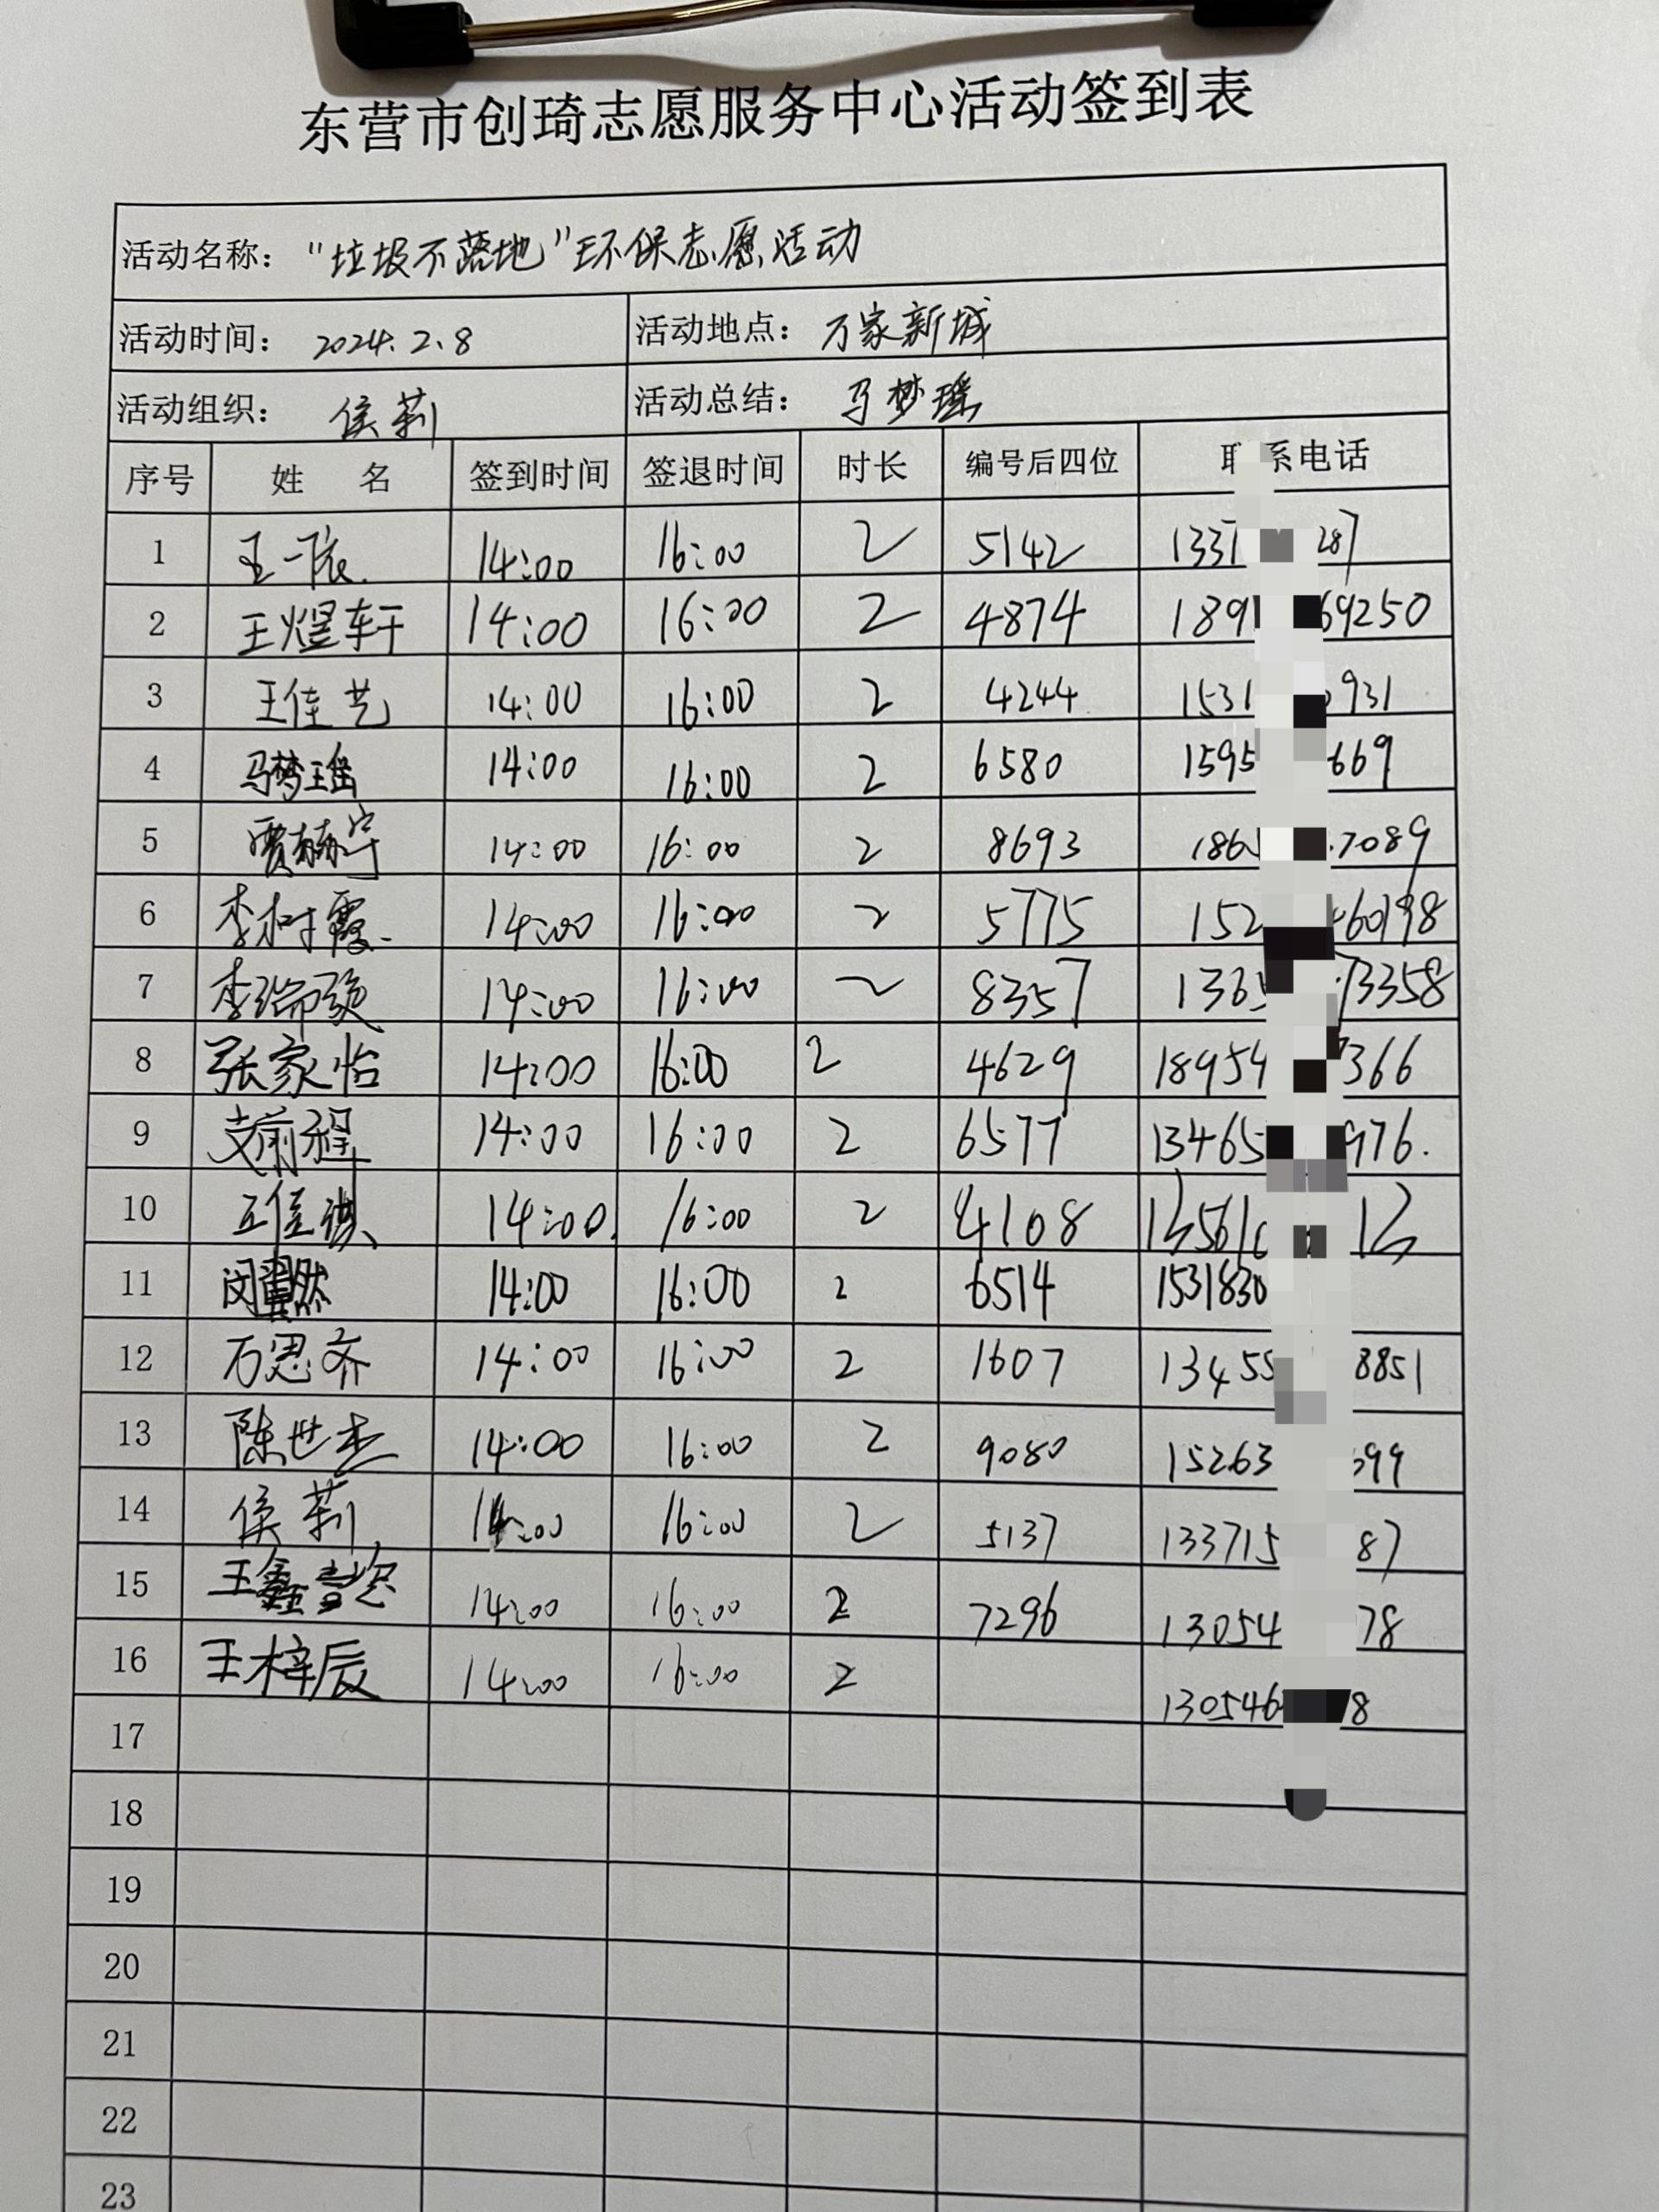 东营市创琦志愿服务中心活动签到表
活动名称：“垃圾不落地”环保志愿活动
活动时间：2024.2.8 活动地点：万家新城
活动组织：侯莉 活动总结：马梦瑶
序号 姓 名 签到时间 签退时间 时长 编号后四位 联系电话
1 王一依 14:00 16:00 2 5142 1331 287
2 王煜轩 14:00 16:00 2 4874 1891 69250
3 王佳艺 14:00 16:00 2 4244 1531 931
4 马梦瑶 14:00 16:00 2 6580 1595 669
5 贾赫宇 14:00 16:00 2 8693 186 7089
6 李树霞 14:00 16:00 2 5775 152 60198
7 李瑞 14:00 16:00 2 8357 1365 73358
8 张家怡 14:00 16:00 2 4629 18954 366
9 支前程 14:00 16:00 2 6577 13465 976.
10 王佳祺 14:00 16:00 2 4108 13561
11 闵冀然 14:00 16:00 2 6514 1531830
12 万思齐 14:00 16:00 2 1607 13455 8851
13 陈世杰 14:00 16:00 2 9080 15263 99
14 侯莉 14:00 16:00 2 5137 133715 87
15 王鑫 14:00 16:00 2 7296 13054 78
16 王梓辰 14:00 16:00 2 130546 8
17
18
19
20
21
22
23